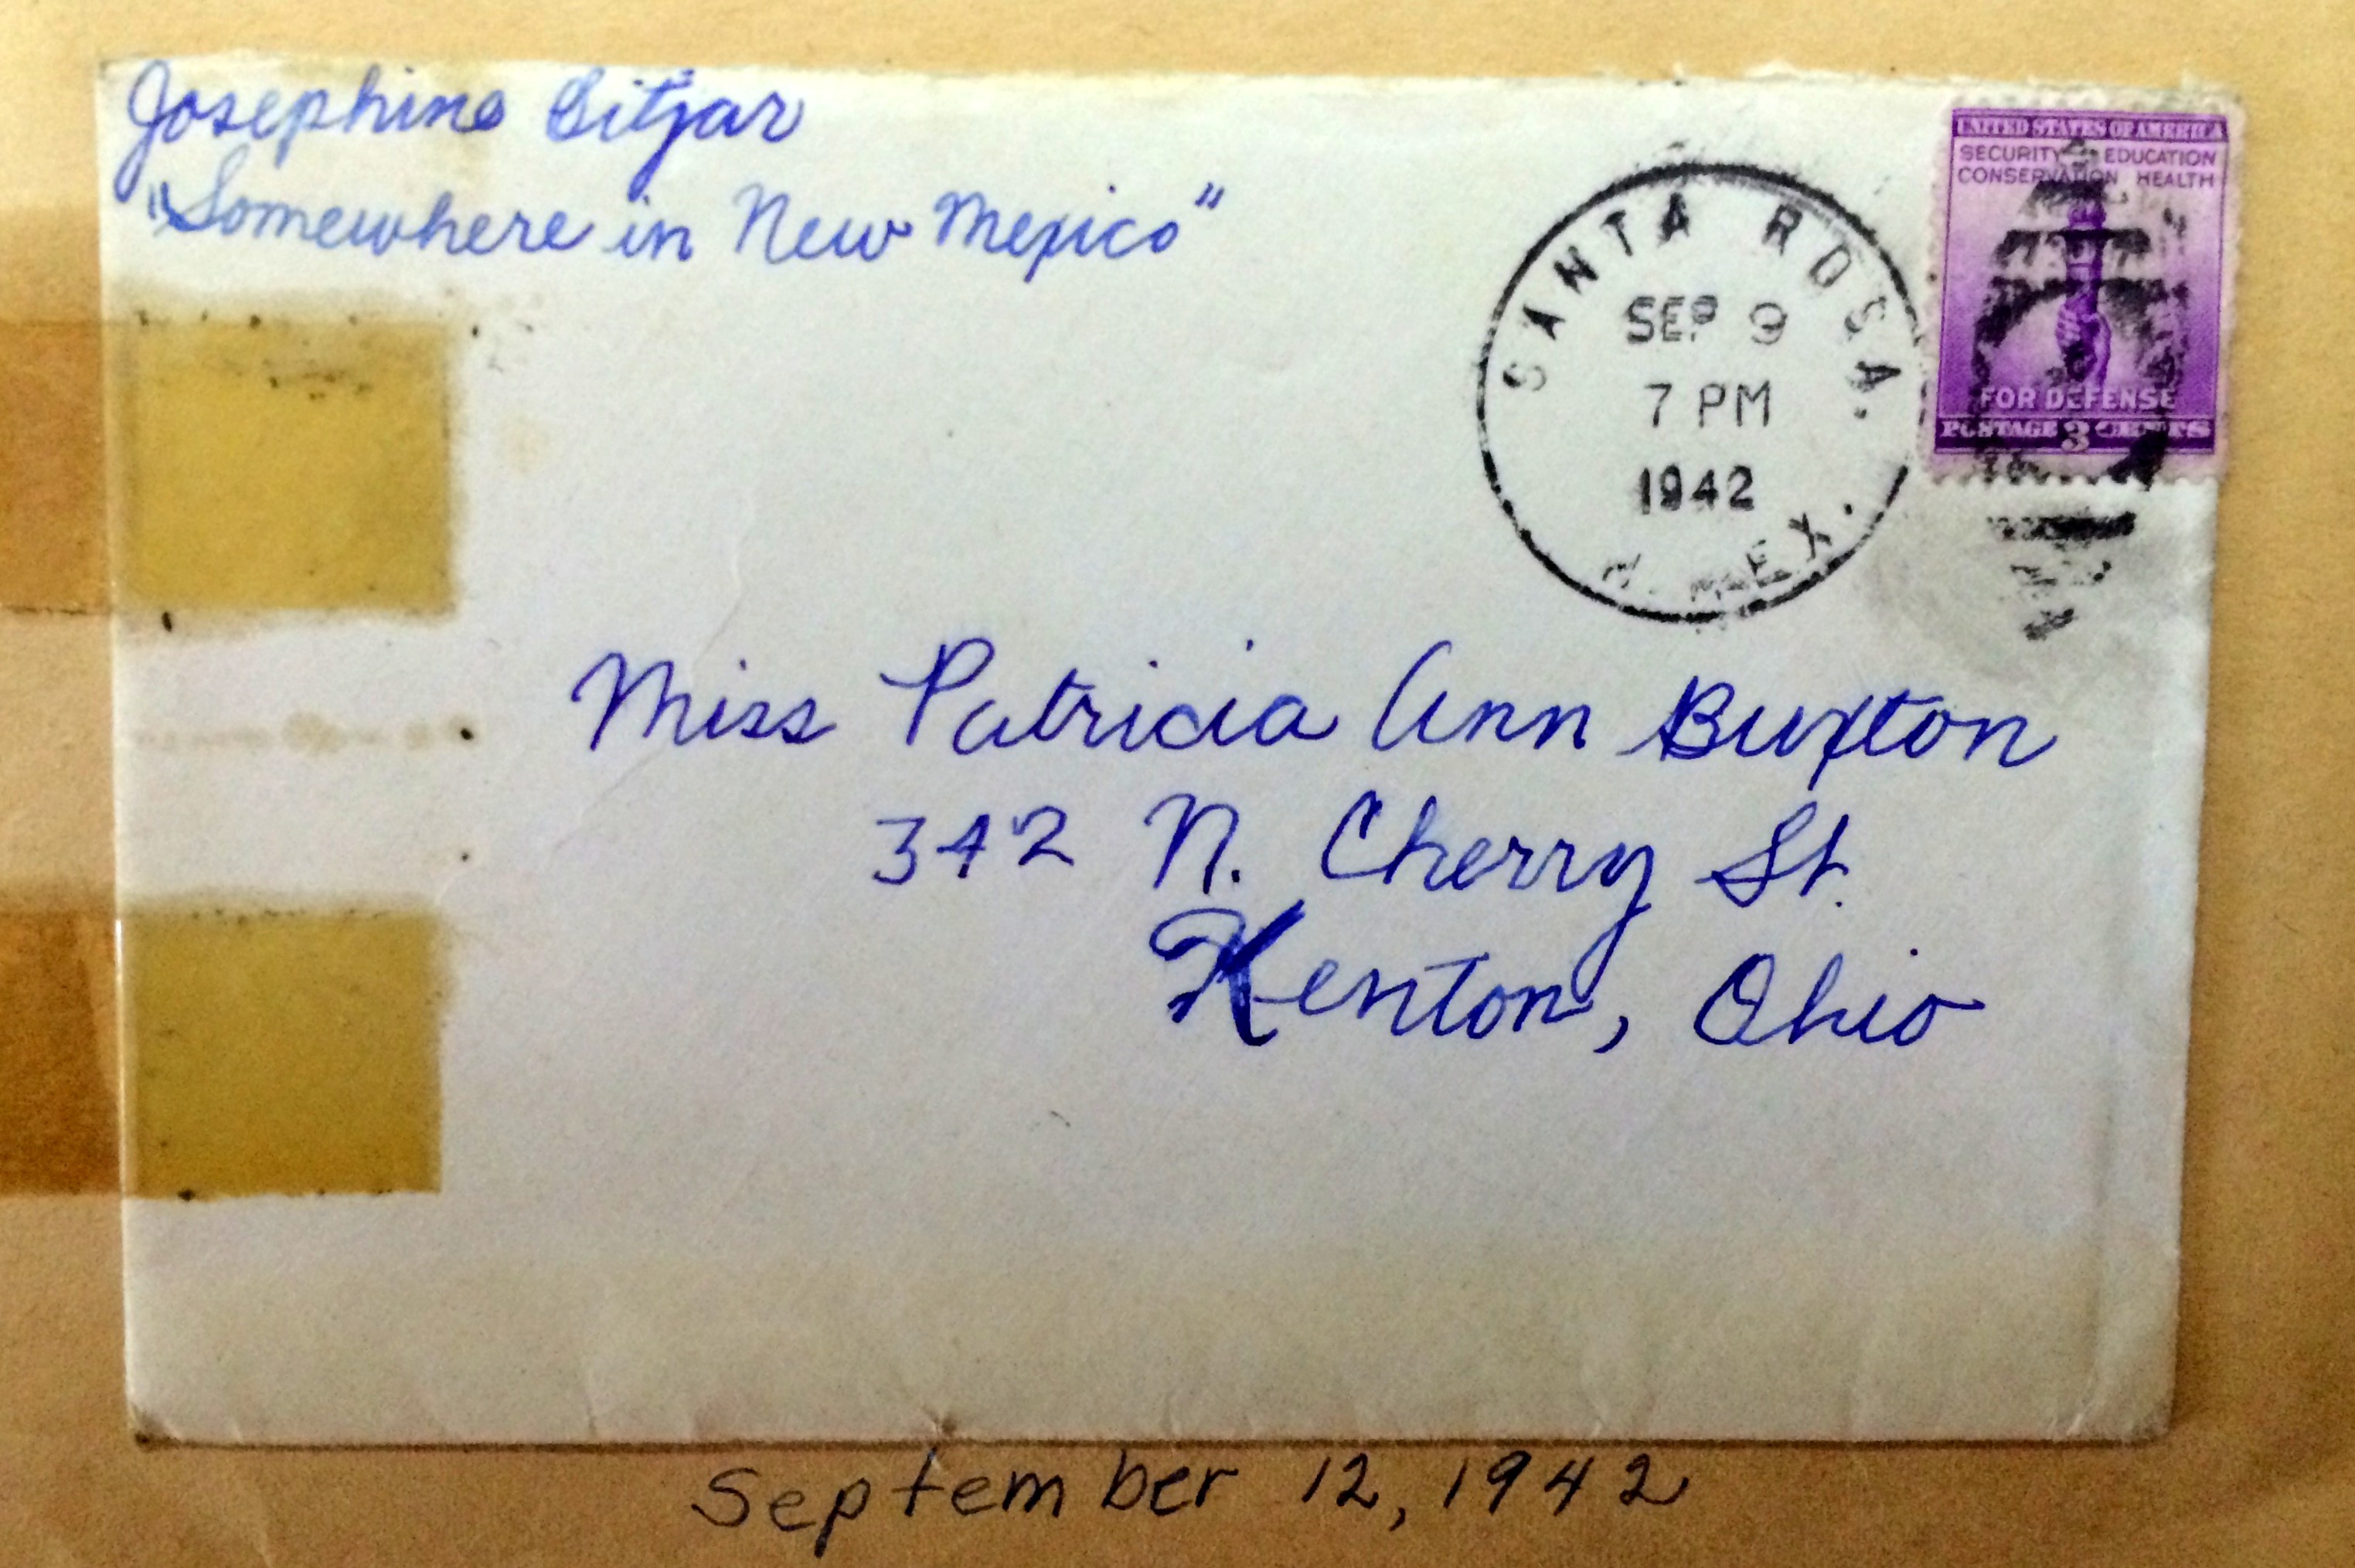 Josephine Sitjar
"Somewhere in New Mexico"
SANTA ROSA.
SEP 9
7 PM
1942
N. MEX.
UNITED STATES OF AMERICA
SECURITY EDUCATION
CONSERVATION HEALTH
FOR DEFENSE
POSTAGE 3 CENTS
Miss Patricia Ann Buxton
342 N. Cherry St.
Kenton, Ohio
September 12, 1942